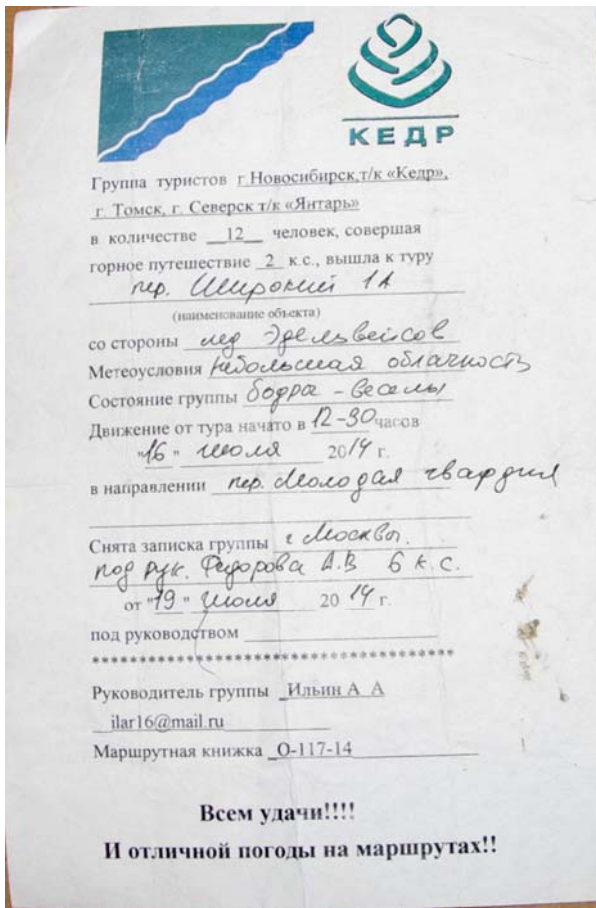 КЕДР
Группа туристов г.Новосибирск,т/к «Кедр»,
г. Томск, г. Северск т/к «Янтарь»
в количестве __12__ человек, совершая
горное путешествие _2_ к.с., вышла к туру
пер. Широкий 1А
(наименование объекта)
со стороны лед Эдельвейсов
Метеоусловия небольшая облачность
Состояние группы бодры - веселы
Движение от тура начато в 12-30 часов
"16" июля 2014 г.
в направлении пер. Молодая гвардия
Снята записка группы г Москвы.
под рук. Федорова А.В 6 к.с.
от "19" июля 2014 г.
под руководством
**************************************
Руководитель группы _Ильин А А
__ilar16@mail.ru
Маршрутная книжка _О-117-14
Всем удачи!!!!
И отличной погоды на маршрутах!!